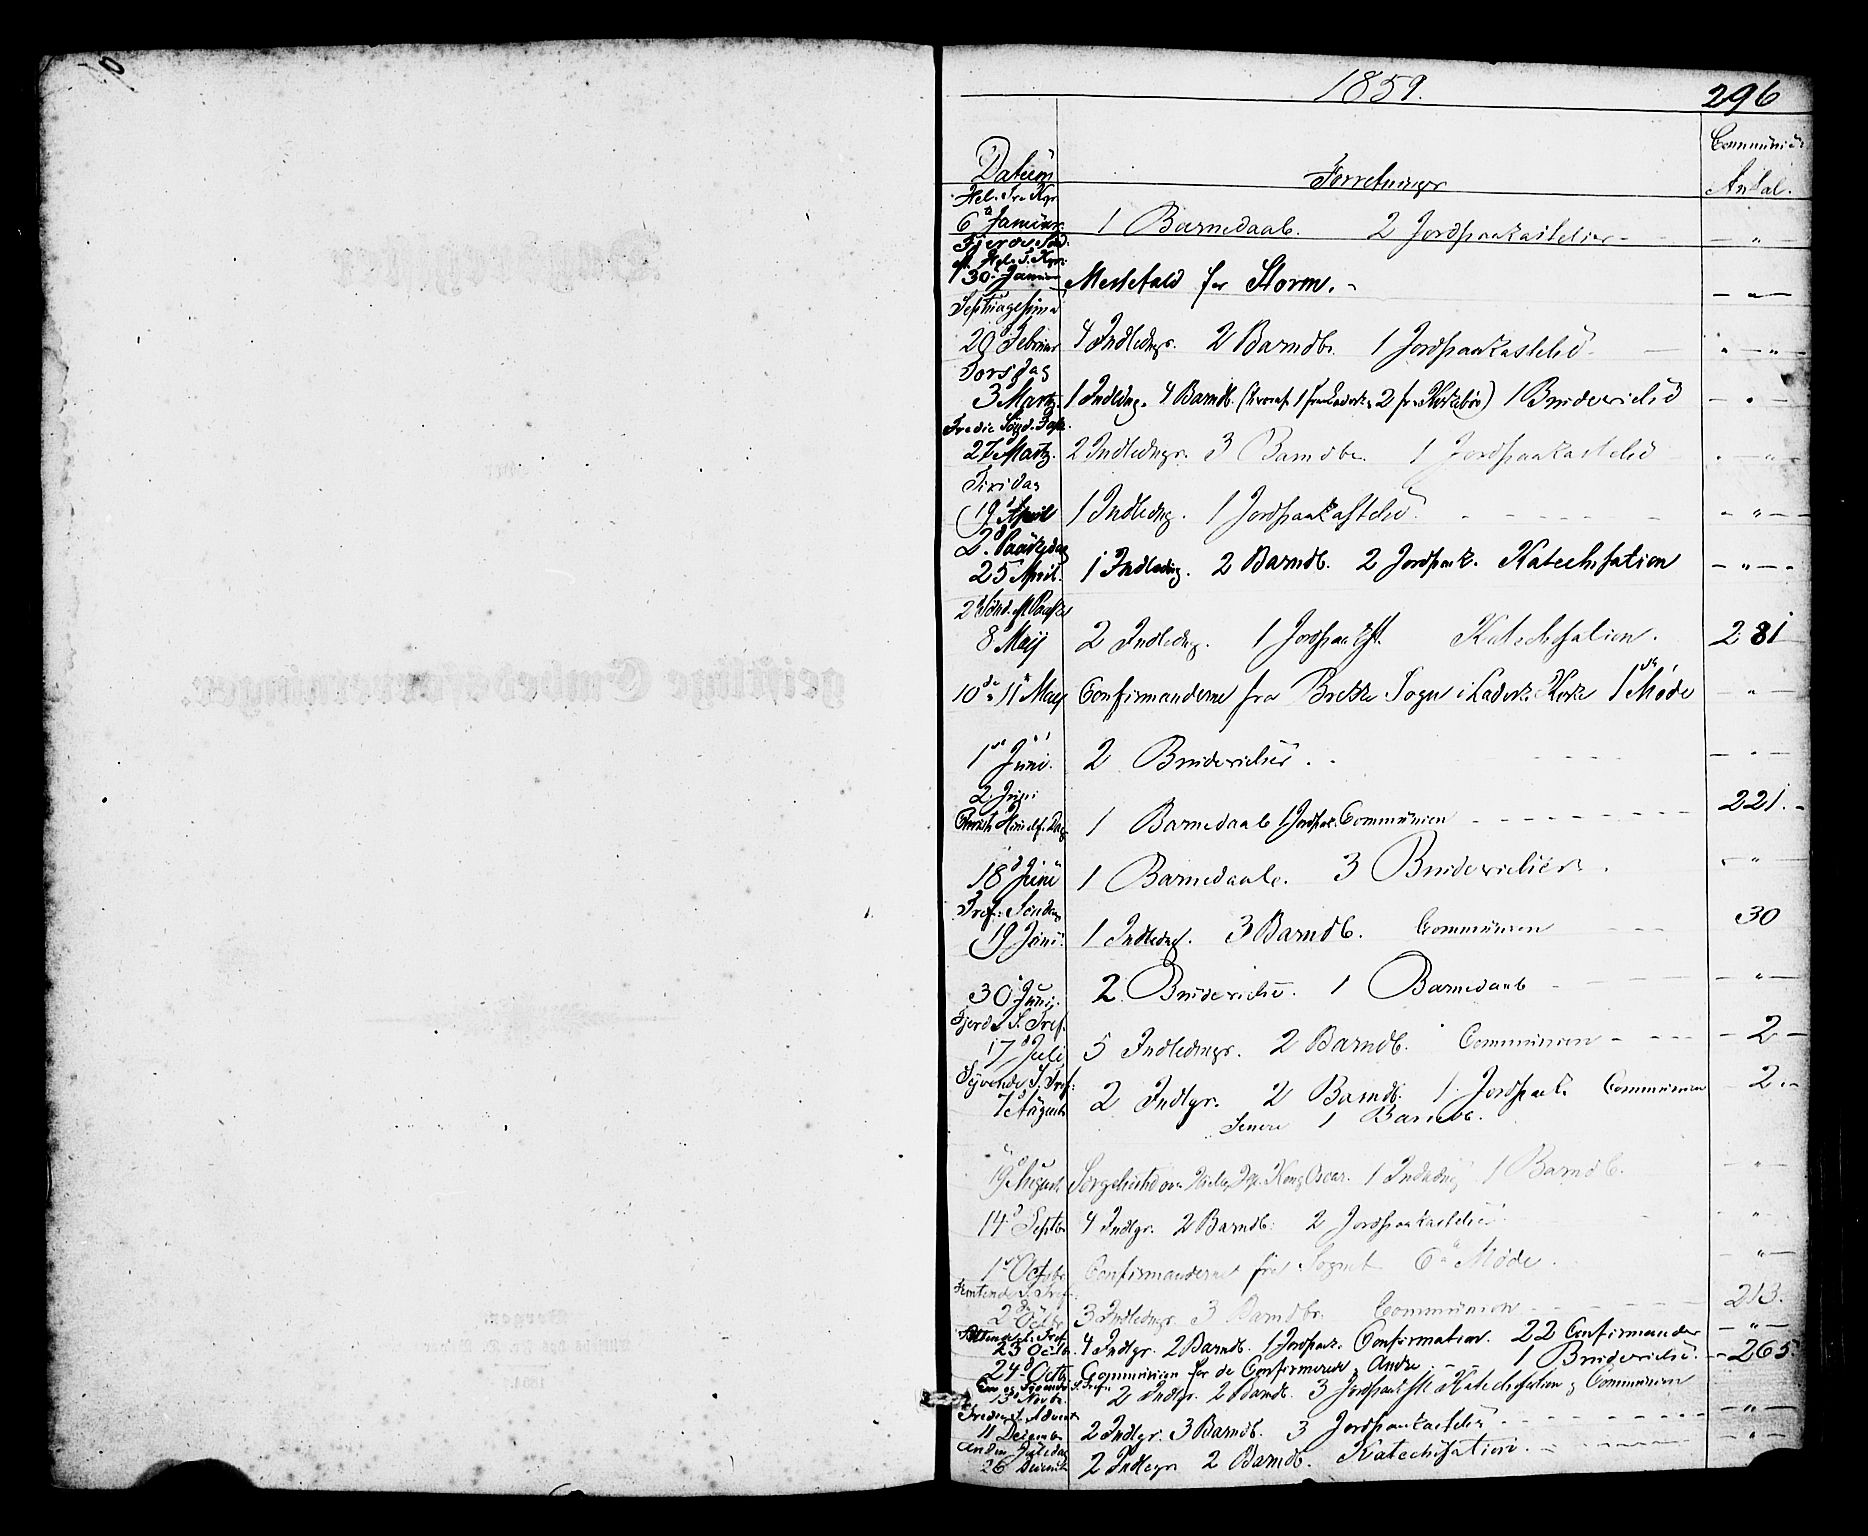 1859.
296
Datum
Forretninger
Communic:
Antal.
Hel. Tre Kgr
6te Januar 1 Barnedaab. 2 Jordpaakastelser - - " -
Fjerde Sønd.
e. Hel. 3 Kgr:
30. Januar Messefald for Storm. - - " -
Septuagesima
20 Februar 4 Indledngr. 2 Barndb. 1 Jordpaakastelse - " - " -
Torsdag
3 Martz. 1 Indledng. 4 Barndb. (hvoraf 1 fra Ladvik, 2 fra Kirkebøe) 1 Brudevielse - " -
Tredie Sønd. Faste.
27 Martz. 2 Indledngr. 3 Barndbr. 1 Jordpaakastelse " - "
Tirsdag
19 April 1 Indledng. 1 Jordpaakastelse - " -
2d. Paaskedag
25 April. 1 Indledng. 2 Barndb. 2 Jordpaak. Katechisation - " -
2 Sønd. e. Paaske
8 Maij 2 Indledng. 1 Jordpaakst. Katechisation. 281
10de & 11te Maij Confirmanderne fra Brekke Sogn i Ladviks Kirke 1ste Møde "
1ste Juni. 2 Brudevielser. - " -
2. Juni
Christi Himelf. Dag 1 Barnedaab 1 Jordpak. Communion - - - 221. -
18d Juni 1 Barnedaab. 3 Brudevielser. - " -
Tref: Søndag
19 Juni. 1 Indledng. 3 Barndb. Communion 30
30 Juni. 2 Brudevielse. 1 Barnedaab - " -
Fjerde S. Tref.
17d Juli 5 Indledngr. 2 Barndb. Communion - - - 2 -
Syvende S. Tref:
7 August 2 Indlgr. 2 Barndb. 1 Jordpaak. Communion 2. -
Senere 1 Barndb.
19d August Sørgehøitid over Høisal. Kong Oscar. 1 Indledng 1 Barndb. - " -
14d Septbr 4 Indlgr. 2 Barndb. 2 Jordpaakastelser - " -
1ste Octobr Confirmanderne fra Sognet 6te Møde. - " -
Femtende S. Tref.
2de Octbr 3 Indledngr. 3 Barndbr. Communion - - - 213.
Attende S. Tref.
23 Octb. 4 Indlgr. 2 Barndb. 1 Jordpak. Confirmation. 22 Confirmander - " -
24d Octb. Communion for de Confirmerede & Andre. - - 1 Brudevielse. - 265.
En og Tyvende S. Tref.
13d Novbr. 2 Indlgr. 2 Barndb. 3 Jordpaakst. Katechisation & Communion
Tredie S. Advent
11 December 2 Indlgr. 3 Barndb. 3 Jordpaakastelse - - - " -
Anden Juledag
26 Decemb 2 Indlegr 2 Barndb. Katechisation. - - - " -